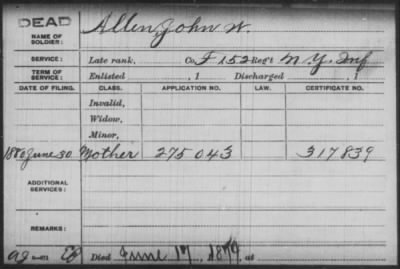 DEAD
NAME OF SOLDIER: Allen, John W.
SERVICE: Late rank, Co. F 152 Reg't N.Y. Inf
TERM OF SERVICE: Enlisted , 1 Discharged , 1
DATE OF FILING. CLASS. APPLICATION NO. LAW. CERTIFICATE NO.
Invalid,
Widow,
Minor,
1880 June 30 Mother 275 043 317839
ADDITIONAL SERVICES:
REMARKS:
Died June 17, 1879, at